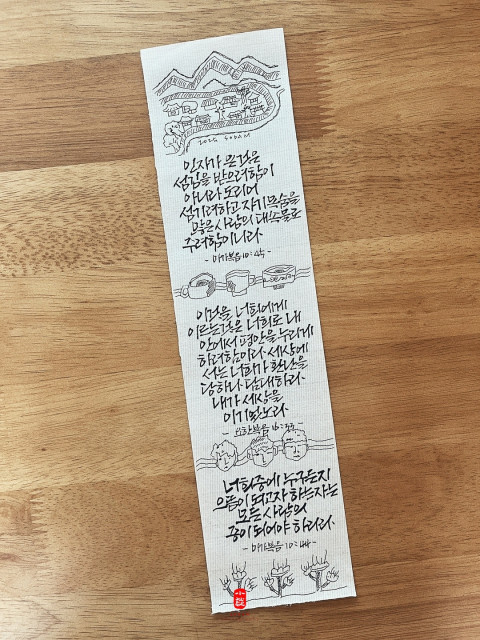 2026 SODAM
인자가 온 것은
섬김을 받으려 함이
아니라 도리어
섬기려 하고 자기 목숨을
많은 사람의 대속물로
주려 함이니라
- 마가복음 10:45 -
이것을 너희에게
이르는 것은 너희로 내
안에서 평안을 누리게
하려 함이라 세상에
서는 너희가 환난을
당하나 담대하라
내가 세상을
이기었노라
- 요한복음 16:33 -
너희 중에 누구든지
으뜸이 되고자 하는 자는
모든 사람의
종이 되어야 하리라
- 마가복음 10:44 -